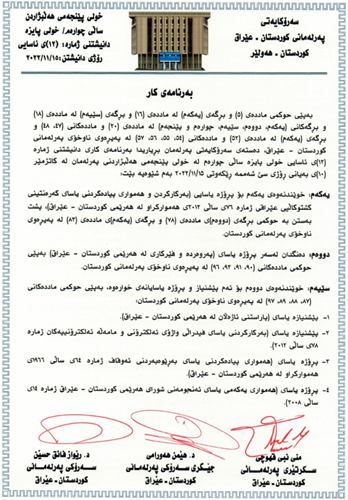 سەرۆکایەتی
پەرلەمانی کوردستان - عێراق
کوردستان - هەولێر
خولی پێنجەمی هەڵبژاردن
ساڵی چوارەم/ خولی پایزە
دانیشتنی ژمارە: (١٢)ی ئاسایی
ڕۆژی دانیشتن: ٢٠٢٢/١١/١٥
بەرنامەی کار
بەپێی حوکمی بڕگەی (٥) و بڕگەی (یەکەم) لە ماددەی (١٦) و بڕگەی (سێیەم) لە ماددەی (١٨)
و بڕگەکانی (یەکەم، دووەم، سێیەم، چوارەم و پێنجەم) لە ماددەی (٢٠) و ماددەکانی (٤٧، ٤٨) و
بڕگەی (یەکەم) لە ماددەی (٥٢) و ماددەکانی (٥٤، ٥٥، ٥٦، ٥٧) لە پەیڕەوی ناوخۆی پەرلەمانی
کوردستان - عێراق، دەستەی سەرۆکایەتی پەرلەمان بڕیاریدا بەرنامەی کاری دانیشتنی ژمارە
(١٢)ی ئاسایی خولی پایزی ساڵی چوارەم لە خولی پێنجەمی هەڵبژاردنی پەرلەمان لە کاتژمێر
(١٠)ی بەیانی ڕۆژی سێ شەممە ڕێکەوتی ٢٠٢٢/١١/١٥ بەم شێوەیە بێت:
یەکەم: خوێندنەوەی یەکەم بۆ پڕۆژە یاسایی (بەرکارکردن و هەمواری بیادەکردنی یاسای گەرەنتیێنی
کشتوکاڵیی عێراقی ژمارە ٧٦ی ساڵی ٢٠١٢ی هەموارکراو لە هەرێمی کوردستان - عێراق)، پشت
بەستن بە حوکمی بڕگەی (دووەم)ی ماددەی (٧٨) و بڕگەی (یەکەم)ی ماددەی (٨٣) لە پەیڕەوی
ناوخۆی پەرلەمانی کوردستان.
دووەم: دەنگدان لەسەر پڕۆژە یاسای (پەروەردە و فێرکاری لە هەرێمی کوردستان - عێراق) بەپێی
حوکمی ماددەکانی (٩٠، ٩١، ٩٢، ٩٣، ٩٦) لە پەیڕەوی ناوخۆی پەرلەمانی کوردستان.
سێیەم: خوێندنەوەی دووەم بۆ ئەم پێشنیاز و پڕۆژە یاسایانەی خوارەوە، بەپێی حوکمی ماددەکانی
(٨٧، ٨٨، ٨٩، ٩٧) لە پەیڕەوی ناوخۆی پەرلەمانی کوردستان:
١- پێشنیازە یاسای (پاراستنی ئاژەڵان لە هەرێمی کوردستان - عێراق).
٢- پێشنیازە یاسای (بەرکارکردنی یاسای فیدراڵی واژۆی ئەلکترۆنی و مامەڵە ئەلکترۆنییەکان ژمارە
٧٨ی ساڵی ٢٠١٢).
٣- پڕۆژە یاسای (هەمواری بیادەکردنی یاسای بەڕێوەبەردنی ئەوقاف ژمارە ٦٤ی ساڵی ١٩٦٦ی
هەموارکراو لە هەرێمی کوردستان - عێراق).
٤- پڕۆژە یاسای (هەمواری یەکەمی یاسای ئەنجومەنی شورای هەرێمی کوردستان - عێراق ژمارە ١٤ی
ساڵی ٢٠٠٨).
منی نبی قهوچی
سکرتێری پەرلەمانی
کوردستان - عێراق
د. هێمن هەورامی
جێگری سەرۆکی پەرلەمانی
کوردستان - عێراق
د. ڕێواز فائق حسێن
سەرۆکی پەرلەمانی
کوردستان - عێراق